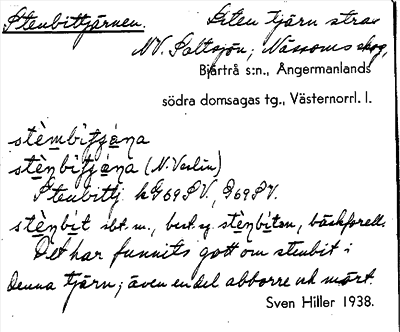 Stenbittjärnen. Liten tjärn strax
NV. Saltsjön, Nässoms skog,
Bjärtrå s:n., Ångermanlands
södra domsagas tg., Västernorrl. l.
stèmbitjána
stènbitjána (N. Verlin)
Stenbittj
stènbit sbt. m., best. sg. stènbiten, bäckforell.
Det har funnits gott om stenbit i
denna tjärn; även en del abborre och mört.
Sven Hiller 1938.